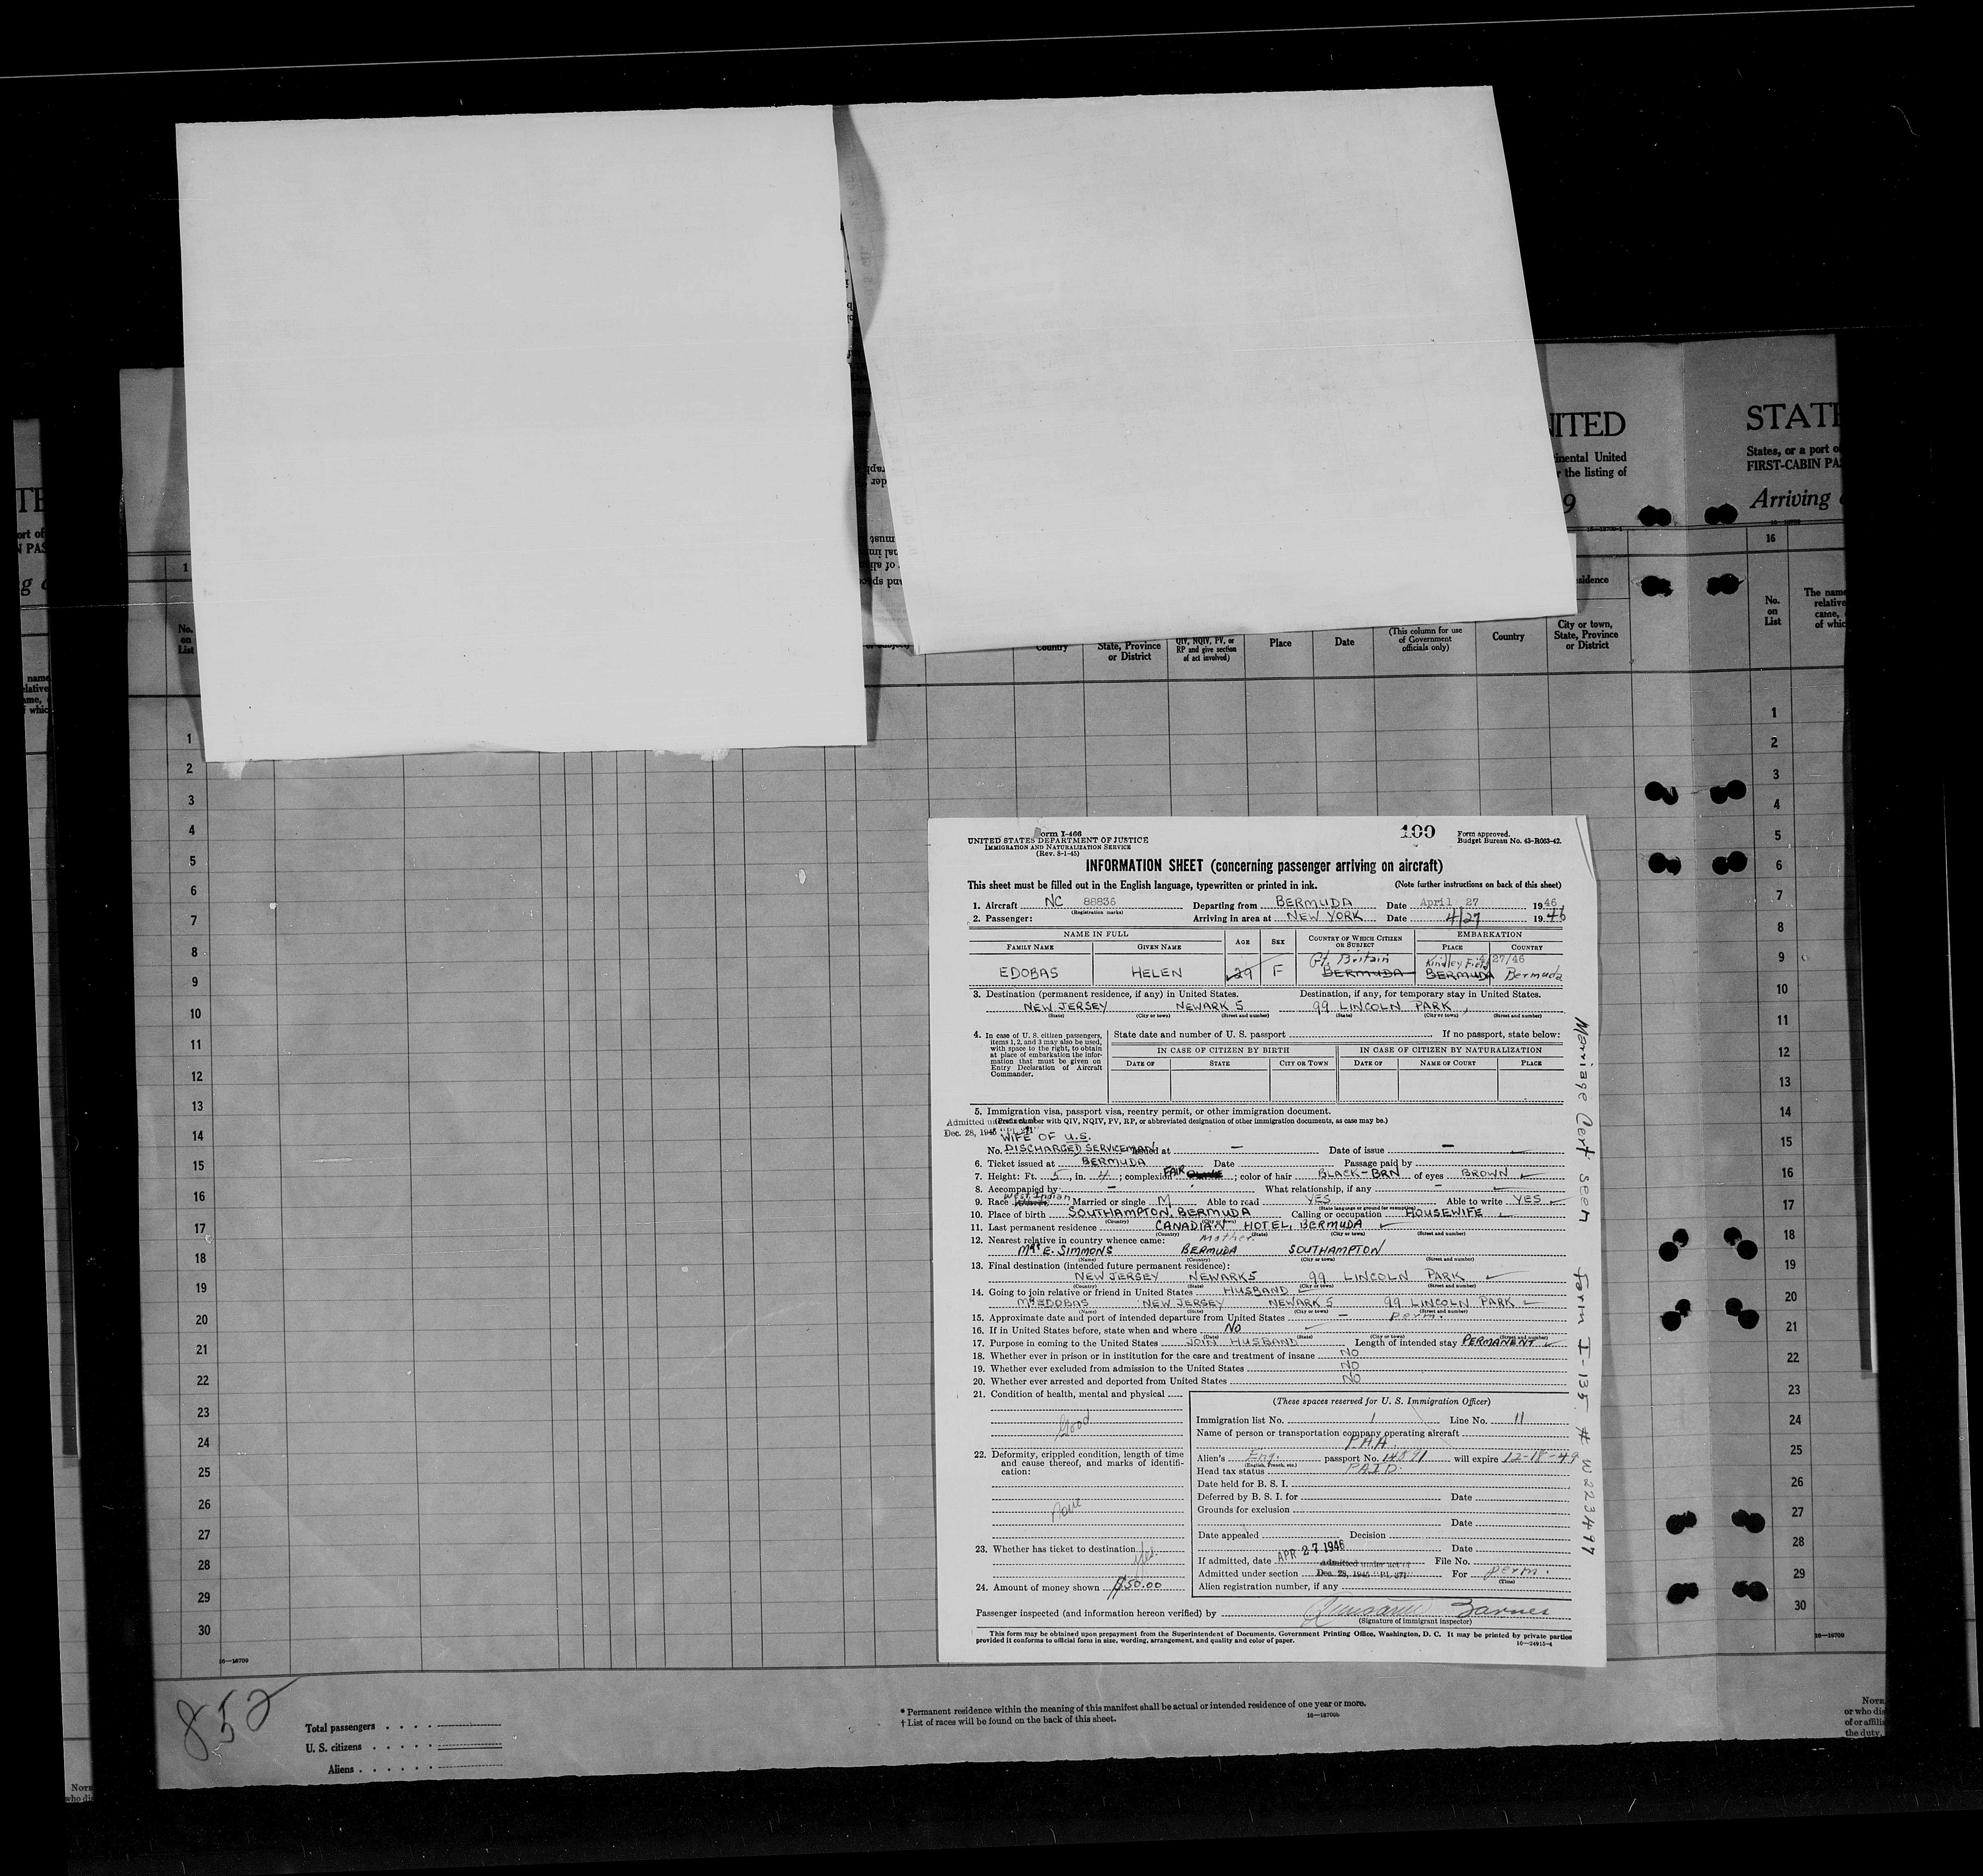 NITED
STATE
inental United
r the listing of
States, or a port o
FIRST-CABIN PA
9
Arriving
16
1
sidence
No.
on
List
Country
State, Province
or District
QIV, NQIV, PV, or
RP and give section
of act involved)
Place
Date
(This column for use
of Government
officials only)
Country
City or town,
State, Province
or District
No.
on
List
The name
relative
came,
of whic
1
2
3
4
5
6
7
8
9
10
11
12
13
14
15
16
17
18
19
20
21
22
23
24
25
26
27
28
29
30
16—18709
Form I-466
UNITED STATES DEPARTMENT OF JUSTICE
IMMIGRATION AND NATURALIZATION SERVICE
(Rev. 8-1-45)
100
Form approved.
Budget Bureau No. 43-R063-42.
INFORMATION SHEET (concerning passenger arriving on aircraft)
This sheet must be filled out in the English language, typewritten or printed in ink. (Note further instructions on back of this sheet)
1. Aircraft NC 88836 Departing from BERMUDA Date April 27 1946
(Registration marks)
2. Passenger: Arriving in area at NEW YORK Date 4/27 1946
NAME IN FULL
FAMILY NAME GIVEN NAME AGE SEX COUNTRY OF WHICH CITIZEN OR SUBJECT EMBARKATION
PLACE COUNTRY
Gt. Britain Kindley Field 4/27/46
EDOBAS HELEN 29 F BERMUDA BERMUDA Bermuda
3. Destination (permanent residence, if any) in United States. Destination, if any, for temporary stay in United States.
NEW JERSEY NEWARK 5 99 LINCOLN PARK
(State) (City or town) (Street and number) (State) (City or town) (Street and number)
4. In case of U. S. citizen passengers, items 1, 2, and 3 may also be used, with space to the right, to obtain at place of embarkation the information that must be given on Entry Declaration of Aircraft Commander.
State date and number of U. S. passport If no passport, state below:
IN CASE OF CITIZEN BY BIRTH IN CASE OF CITIZEN BY NATURALIZATION
DATE OF STATE CITY OR TOWN DATE OF NAME OF COURT PLACE
5. Immigration visa, passport visa, reentry permit, or other immigration document.
(Prefix number with QIV, NQIV, PV, RP, or abbreviated designation of other immigration documents, as case may be.)
Admitted under act of
Dec. 28, 1945 "PL 271"
WIFE OF U.S.
No. DISCHARGED SERVICEMAN Issued at — Date of issue —
6. Ticket issued at BERMUDA Date Passage paid by
7. Height: Ft. 5, in. 4; complexion FAIR; color of hair BLACK-BRN of eyes BROWN
8. Accompanied by — What relationship, if any —
9. Race West Indian Married or single M Able to read YES Able to write YES
(State language or ground for exemption)
10. Place of birth SOUTHAMPTON, BERMUDA Calling or occupation HOUSEWIFE
(Country) (City or town)
11. Last permanent residence CANADIAN HOTEL, BERMUDA
(Country) (State) (City or town) (Street and number)
12. Nearest relative in country whence came: Mother
Mrs E. SIMMONS BERMUDA SOUTHAMPTON
(Name) (Country) (City or town) (Street and number)
13. Final destination (intended future permanent residence):
NEW JERSEY NEWARK 5 99 LINCOLN PARK
(Country) (State) (City or town) (Street and number)
14. Going to join relative or friend in United States HUSBAND
Mr EDOBAS NEW JERSEY NEWARK 5 99 LINCOLN PARK
(Name) (State) (City or town) (Street and number)
15. Approximate date and port of intended departure from United States — Perm.
16. If in United States before, state when and where NO
(Date) (State) (City or town) (Street and number)
17. Purpose in coming to the United States JOIN HUSBAND Length of intended stay PERMANENT
18. Whether ever in prison or in institution for the care and treatment of insane NO
19. Whether ever excluded from admission to the United States NO
20. Whether ever arrested and deported from United States NO
21. Condition of health, mental and physical
Good
22. Deformity, crippled condition, length of time and cause thereof, and marks of identification:
None
23. Whether has ticket to destination Yes.
24. Amount of money shown $50.00
(These spaces reserved for U. S. Immigration Officer)
Immigration list No. 1 Line No. 11
Name of person or transportation company operating aircraft
P.A.A.
Alien's Eng. passport No. 14891 will expire 12-18-49
(English, French, etc.)
Head tax status PAID.
Date held for B. S. I.
Deferred by B. S. I. for Date
Grounds for exclusion
Date
Date appealed Decision
Date
If admitted, date APR 27 1946 File No.
Admitted under act of
Admitted under section Dec. 28, 1945 "PL 271" For perm.
(Time)
Alien registration number, if any
Passenger inspected (and information hereon verified) by Barnes
(Signature of immigrant inspector)
This form may be obtained upon prepayment from the Superintendent of Documents, Government Printing Office, Washington, D. C. It may be printed by private parties
provided it conforms to official form in size, wording, arrangement, and quality and color of paper. 16—24915-4
Marriage Cert. seen Form I-135 # W223497
852
Total passengers
U. S. citizens
Aliens
* Permanent residence within the meaning of this manifest shall be actual or intended residence of one year or more.
† List of races will be found on the back of this sheet.
16—18709b
NOTE
or who dis
of or affilia
the duty,